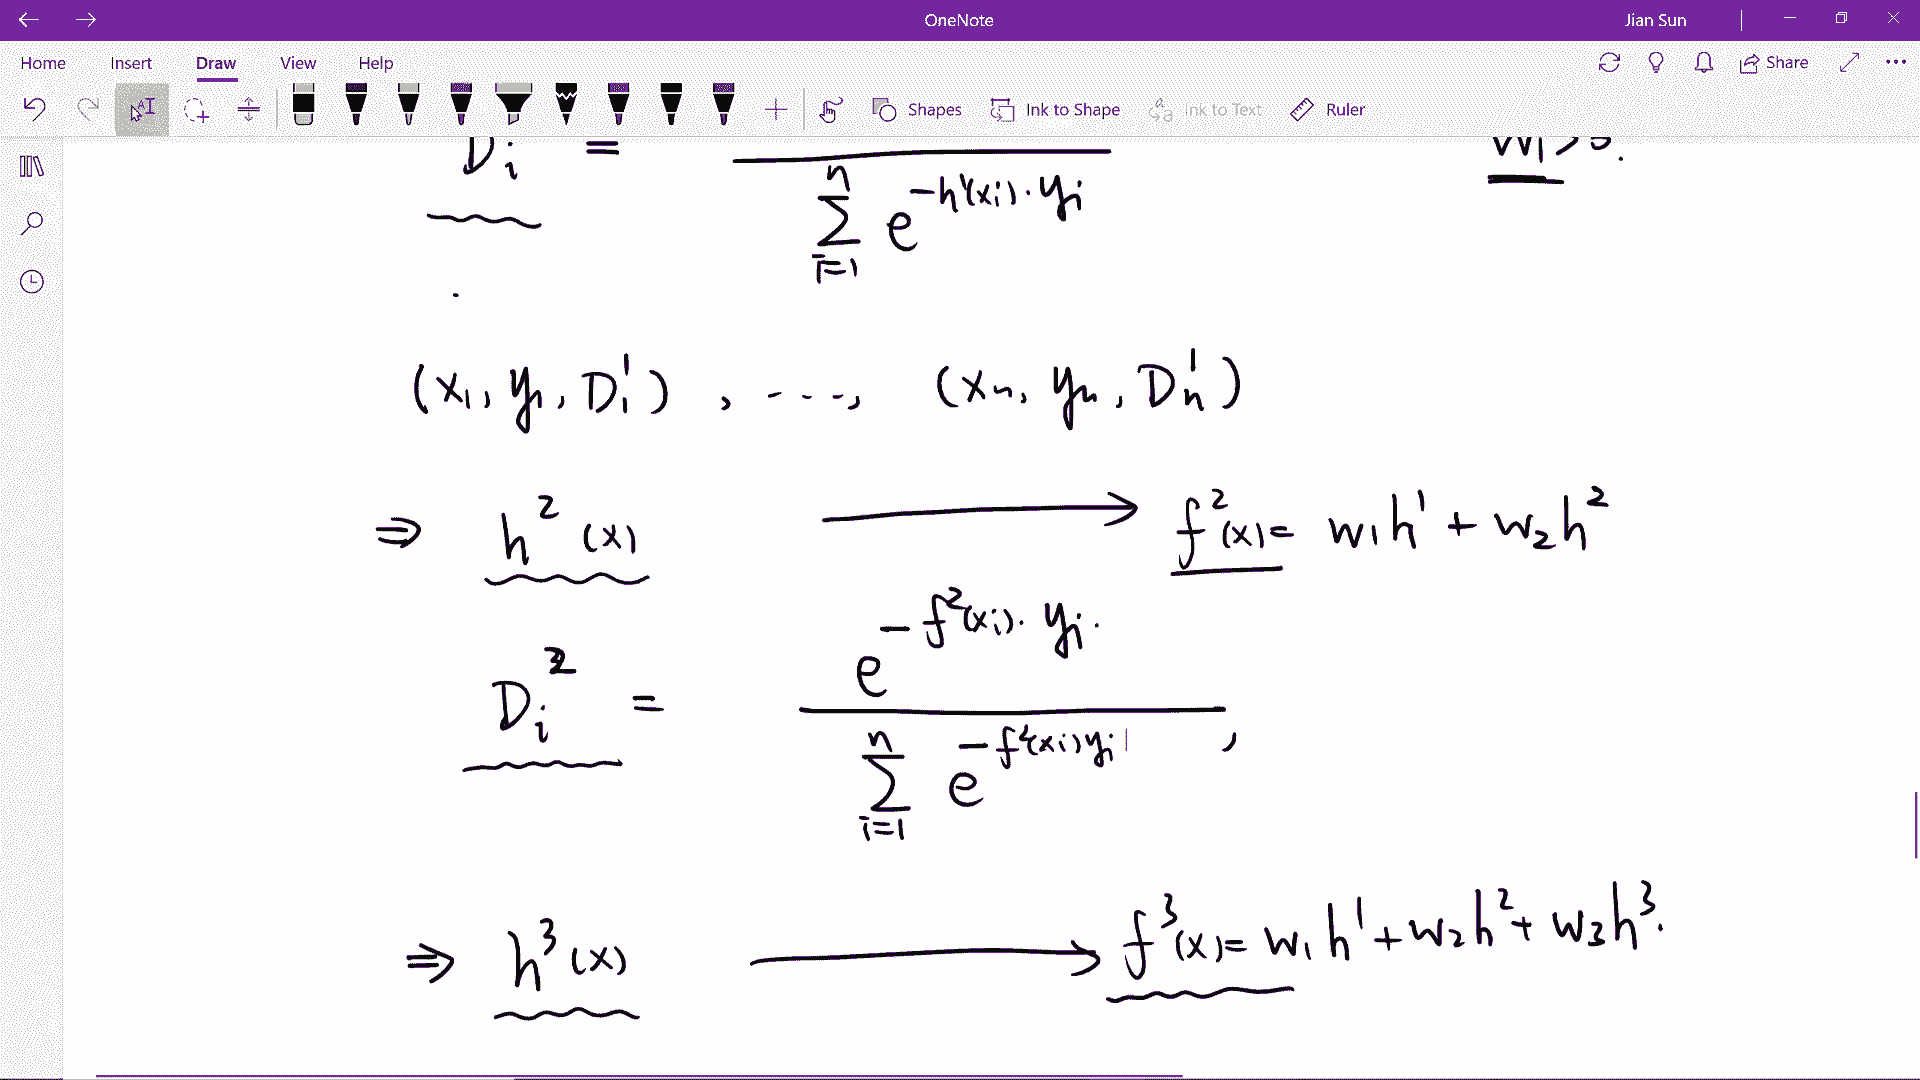 OneNote
Jian Sun
Home Insert Draw View Help
Share
Shapes Ink to Shape Ink to Text Ruler
D_i = W_1 > 0.
\sum_{i=1}^{n} e^{-h^1(x_i) \cdot y_i}
(x_1, y_1, D_1^1), ----, (x_n, y_n, D_n^1)
⇒ h^2(x) ⟶ f^2(x) = w_1h^1 + w_2h^2
D_i^2 = \frac{e^{-f^2(x_i) \cdot y_i}}{\sum_{i=1}^{n} e^{-f^2(x_i)y_i}},
⇒ h^3(x) ⟶ f^3(x) = w_1h^1 + w_2h^2 + w_3h^3.